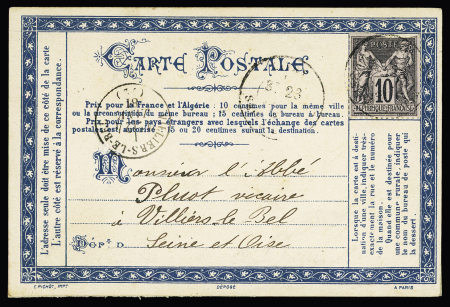 CARTE POSTALE
POSTE
10
REPUBLIQUE FRANCAISE
Prix pour la France et l'Algérie : 10 centimes pour la même ville
ou la circonscription du même bureau ; 15 centimes de bureau à bureau.
Prix pour les pays étrangers avec lesquels l'échange des cartes
postales est autorisé 15 ou 20 centimes suivant la destination.
L'adresse seule doit être mise de ce côté de la carte
L'autre côté est réservé à la correspondance.
Monsieur l'Abbé
Pluot vicaire
à Villiers le Bel
Dépt D
Seine et Oise
Lorsque la carte est à desti-
nation d'une ville, indiquer très-
exactement la rue et le numéro
de la maison.
Quand elle est destinée pour
une commune rurale, indiquer
le nom du bureau de poste qui
la dessert.
E. PICHOT, IMPT
DÉPOSÉ
A PARIS